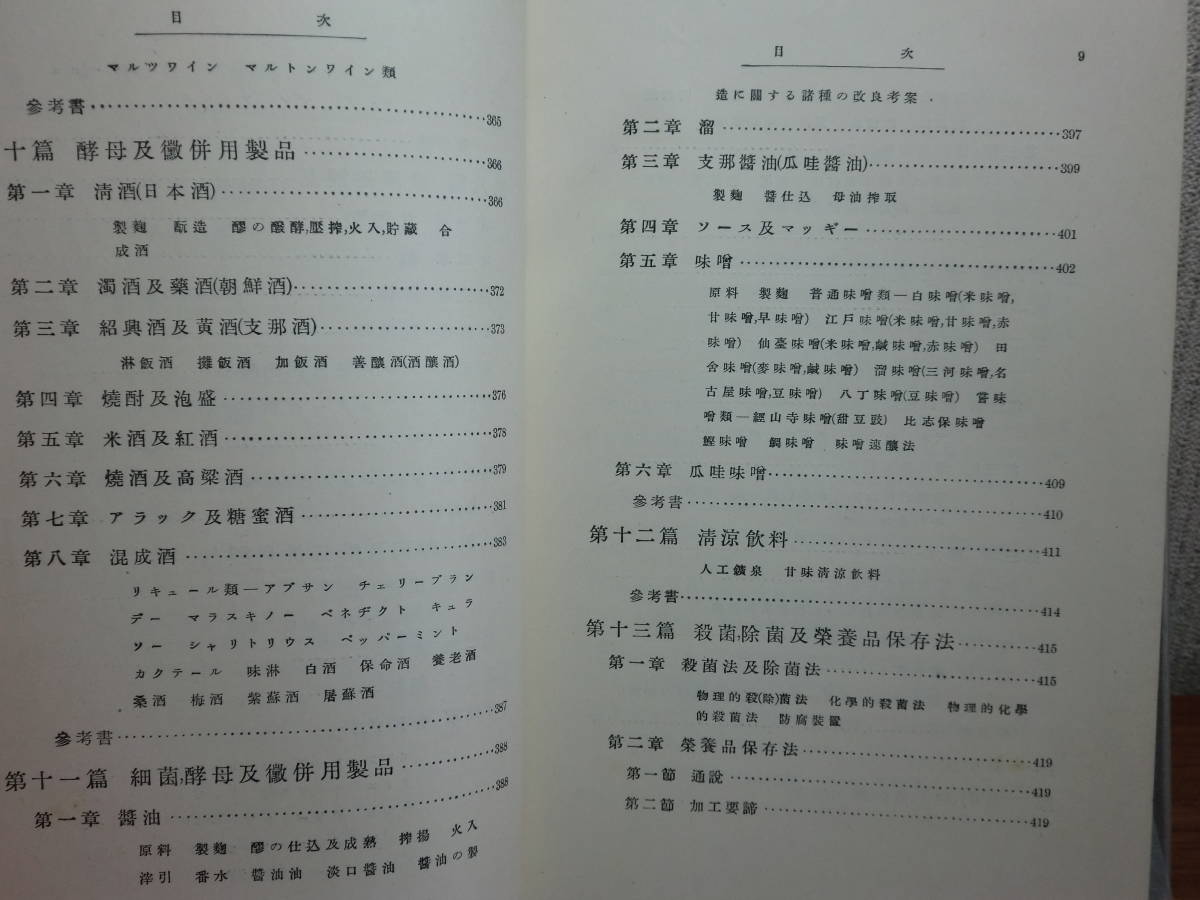 目次
マルツワイン マルトンワイン類
參考書 365
十篇 酵母及黴併用製品 366
第一章 淸酒(日本酒) 366
製麴 酛造 醪の醱酵,壓搾,火入,貯藏 合
成酒
第二章 濁酒及藥酒(朝鮮酒) 372
第三章 紹興酒及黃酒(支那酒) 373
淋飯酒 攤飯酒 加飯酒 善釀酒(酒釀酒)
第四章 燒酎及泡盛 376
第五章 米酒及紅酒 378
第六章 燒酒及高粱酒 379
第七章 アラック及糖蜜酒 381
第八章 混成酒 383
リキュール類—アブサン チェリーブラン
デー マラスキノー ベネヂクト キュラ
ソー シャリトリウス ペッパーミント
カクテール 味淋 白酒 保命酒 養老酒
桑酒 梅酒 紫蘇酒 屠蘇酒
參考書 387
第十一篇 細菌,酵母及黴併用製品 388
第一章 醬油 388
原料 製麴 醪の仕込及成熟 搾揚 火入
滓引 番水 醬油油 淡口醬油 醬油の製
目次 9
造に關する諸種の改良考案
第二章 溜 397
第三章 支那醬油(瓜哇醬油) 399
製麴 醬仕込 母油搾取
第四章 ソース及マッギー 401
第五章 味噌 402
原料 製麴 普通味噌類—白味噌(米味噌,
甘味噌,早味噌) 江戶味噌(米味噌,甘味噌,赤
味噌) 仙臺味噌(米味噌,鹹味噌,赤味噌) 田
舍味噌(麥味噌,鹹味噌) 溜味噌(三河味噌,名
古屋味噌,豆味噌) 八丁味噌(豆味噌) 嘗味
噌類—經山寺味噌(甜豆豉) 比志保味噌
鰹味噌 鯛味噌 味噌速釀法
第六章 瓜哇味噌 409
參考書 410
第十二篇 淸涼飮料 411
人工鑛泉 甘味淸涼飮料
參考書 414
第十三篇 殺菌,除菌及榮養品保存法 415
第一章 殺菌法及除菌法 415
物理的殺(除)菌法 化學的殺菌法 物理的化學
的殺菌法 防腐裝置
第二章 榮養品保存法 419
第一節 通說 419
第二節 加工要諦 419